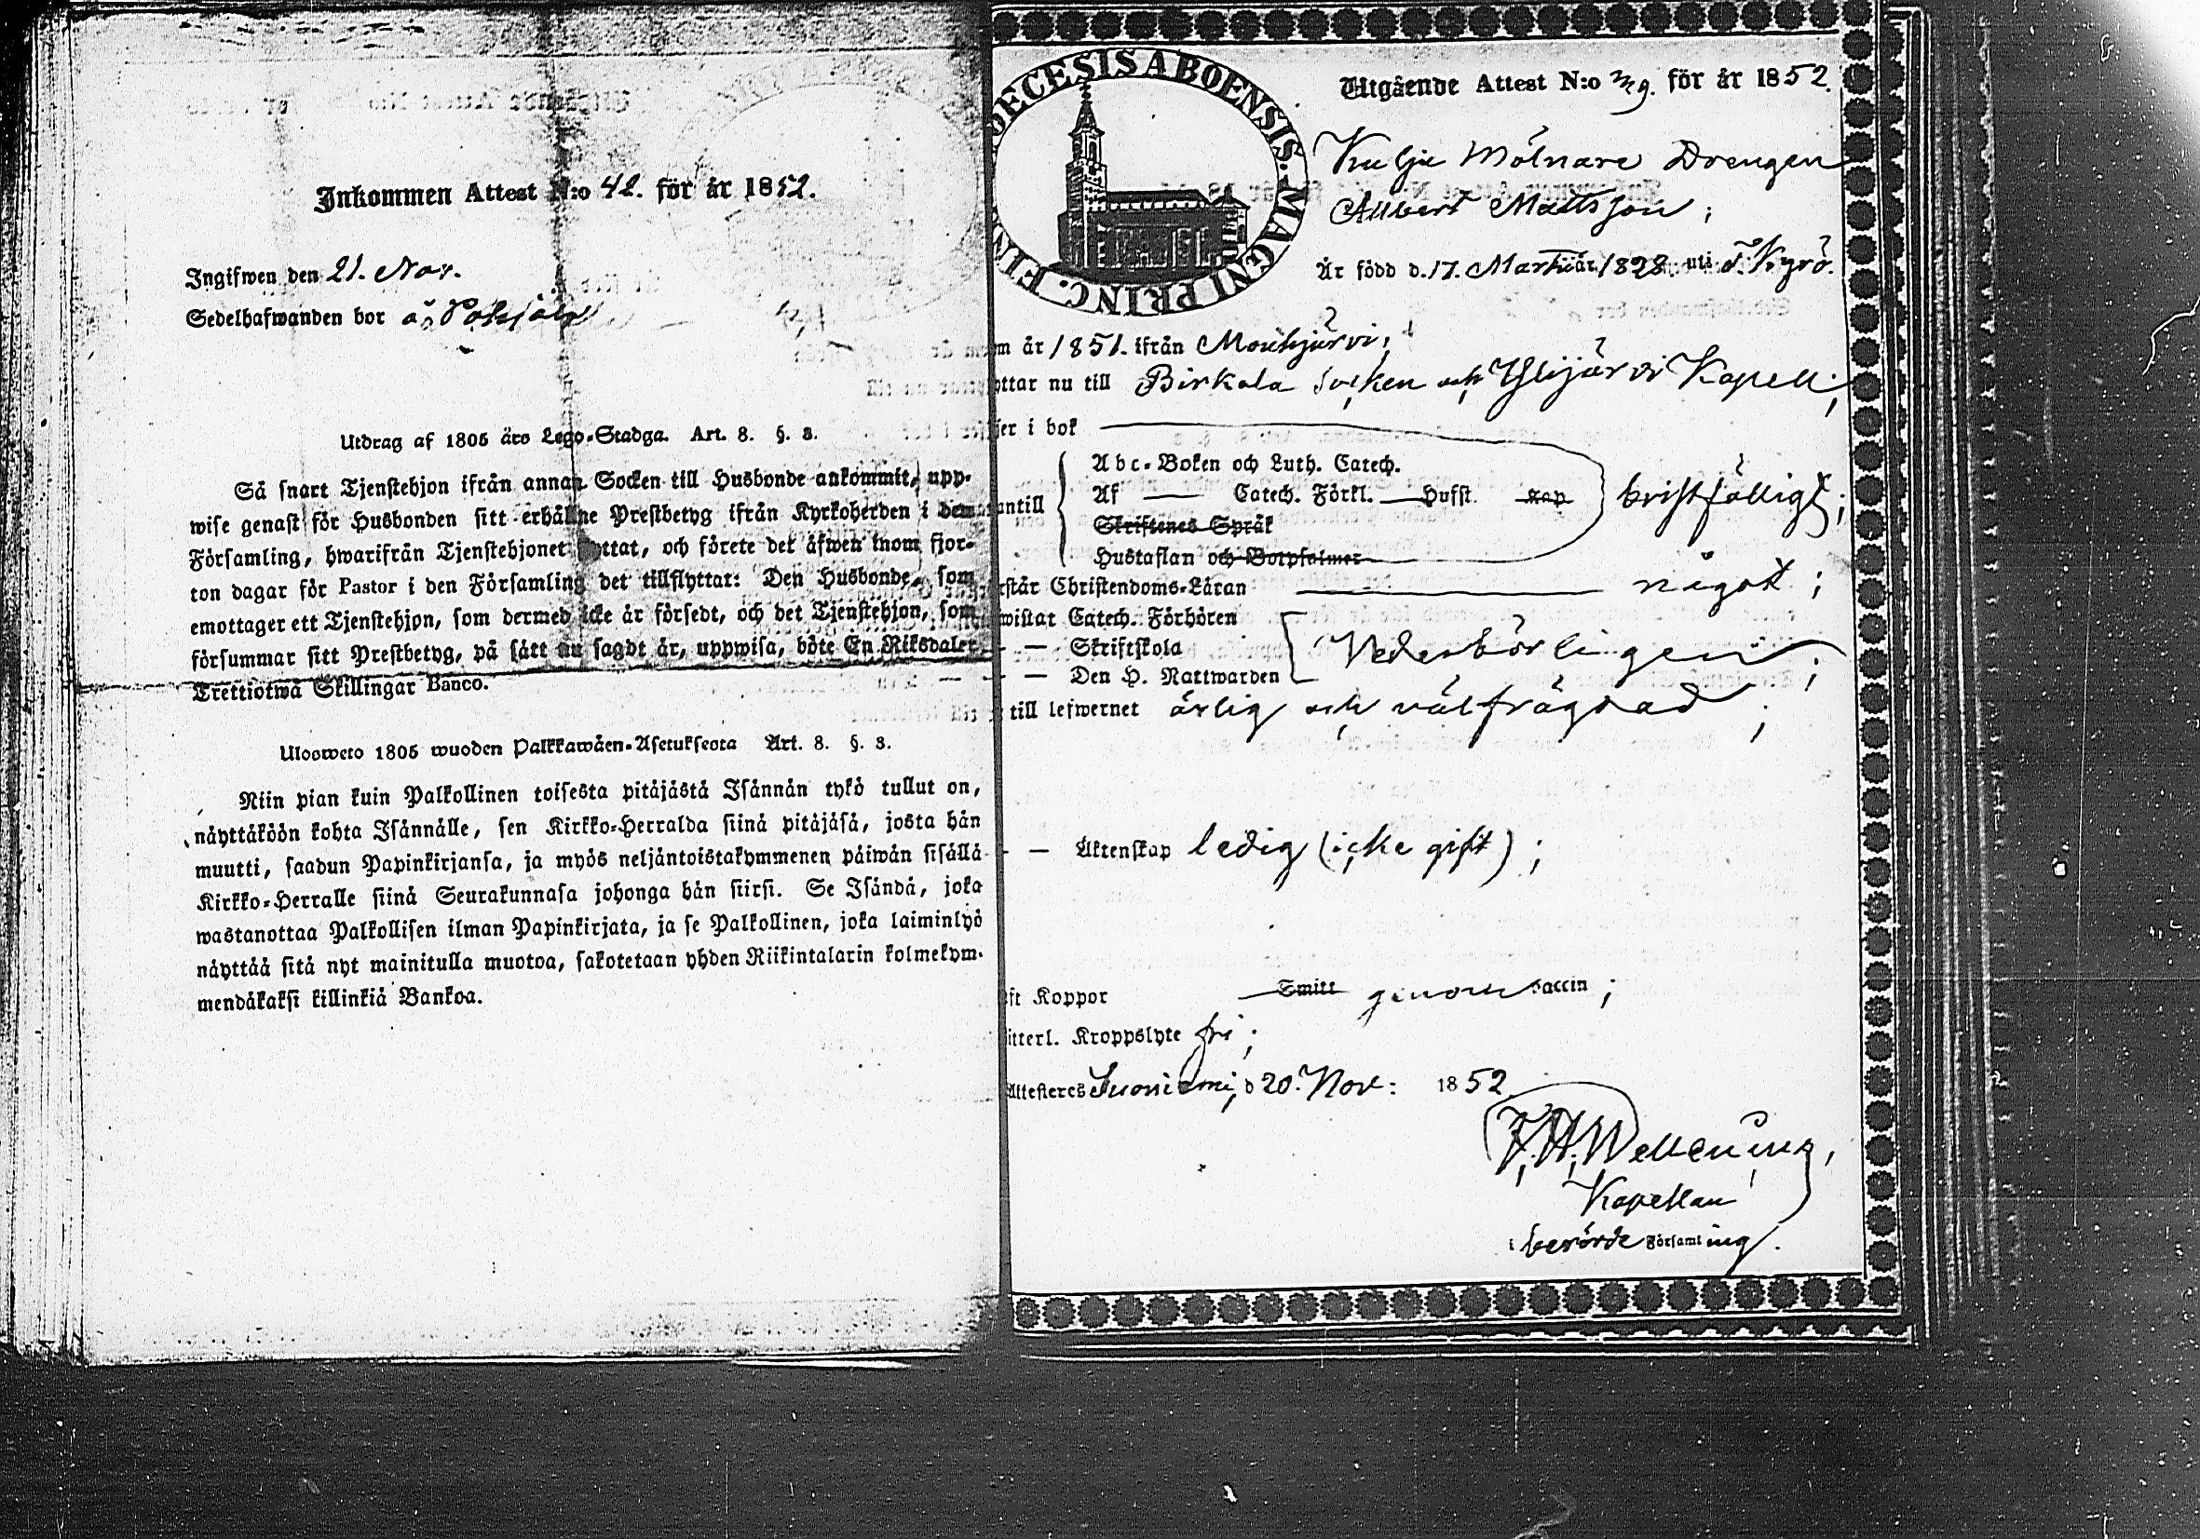 Inkommen Attest N:o 42. för år 1852.
Ingifwen den 21. Nov.
Sedelhafwanden bor å Pohjola
Utdrag af 1805 års Lego-Stadga. Art. 8. §. 3.
Så snart Tjenstehjon ifrån annan Socken till Husbonde ankommit, upp-
wise genast för Husbonden sitt erhållne Prestbetyg ifrån Kyrkoherden i den
Församling, hwarifrån Tjenstehjonet flyttat, och förete det äfwen inom fjor-
ton dagar för Pastor i den Församling det tillflyttat: Den Husbonde, som
emottager ett Tjenstehjon, som dermed icke är försedt, och det Tjenstehjon, som
försummar sitt Prestbetyg, på sätt nu sagdt är, uppwisa, böte En Riksdaler
Trettiotwå Skillingar Banco.
Ulosweto 1805 wuoden Palkkawäen-Asetuksesta Art. 8. §. 3.
Niin pian kuin Palkollinen toisesta pitäjästä Isännän tykö tullut on,
näyttäköön kohta Isännälle, sen Kirkko-Herralda siinä pitäjäsä, josta hän
muutti, saadun Papinkirjansa, ja myös neljäntoistakymmenen päiwän sisällä
Kirkko-Herralle siinä Seurakunnasa johonga hän siirsi. Se Isändä, joka
wastanottaa Palkollisen ilman Papinkirjata, ja se Palkollinen, joka laiminlyö
näyttää sitä nyt mainitulla muotoa, sakotetaan yhden Riikintalarin kolmekym-
mendäkaksi killinkiä Bankoa.
DECESIS ABOENSIS. MAGNI PRINC. FIN
Utgående Attest N:o 29. för år 1852.
Kulju Mölnare Drengen
Allbert Mattsson;
Är född d. 17. Martii år 1828 uti T. Kyrö.
m år 1851. ifrån Mouhijärvi;
ttar nu till Birkala Socken och Ylijärvi Kapell;
er i bok
Abc-Boken och Luth. Catech.
Af — Catech. Förkl. Hufst. kap
antill
bristfälligt;
Skriftenes Språk
Hustaflan och Botpsalmer
rstår Christendoms-Läran något;
wistat Catech. Förhören
— — Skriftskola
Vederbörligen;
— — Den H. Nattwarden
till lefwernet ärlig och välfrägdad;
— — Äktenskap ledig (icke gift);
ft Koppor Smitt genom vaccin;
itterl. Kroppslyte fri;
Attesteres Suoniemi, d 20. Nov: 1852
Wellening,
Kapellan
i berörde Församling.